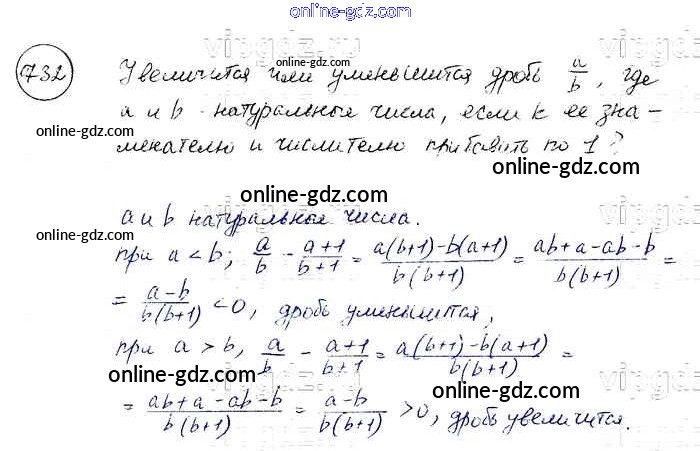 online-gdz.com
732 Увеличится или уменьшится дробь a/b, где
a и b - натуральные числа, если к её зна-
менателю и числителю прибавить по 1?
online-gdz.com
online-gdz.com
online-gdz.com
a и b натуральные числа.
online-gdz.com
online-gdz.com
при a < b; a/b - a+1/b+1 = a(b+1)-b(a+1)/b(b+1) = ab+a-ab-b/b(b+1) =
= a-b/b(b+1) <0, дробь уменьшится,
online-gdz.com
online-gdz.com
при a > b, a/b - a+1/b+1 = a(b+1)-b(a+1)/b(b+1) =
online-gdz.com
online-gdz.com
= ab+a-ab-b/b(b+1) = a-b/b(b+1) >0, дробь увеличится.
online-gdz.com
online-gdz.com